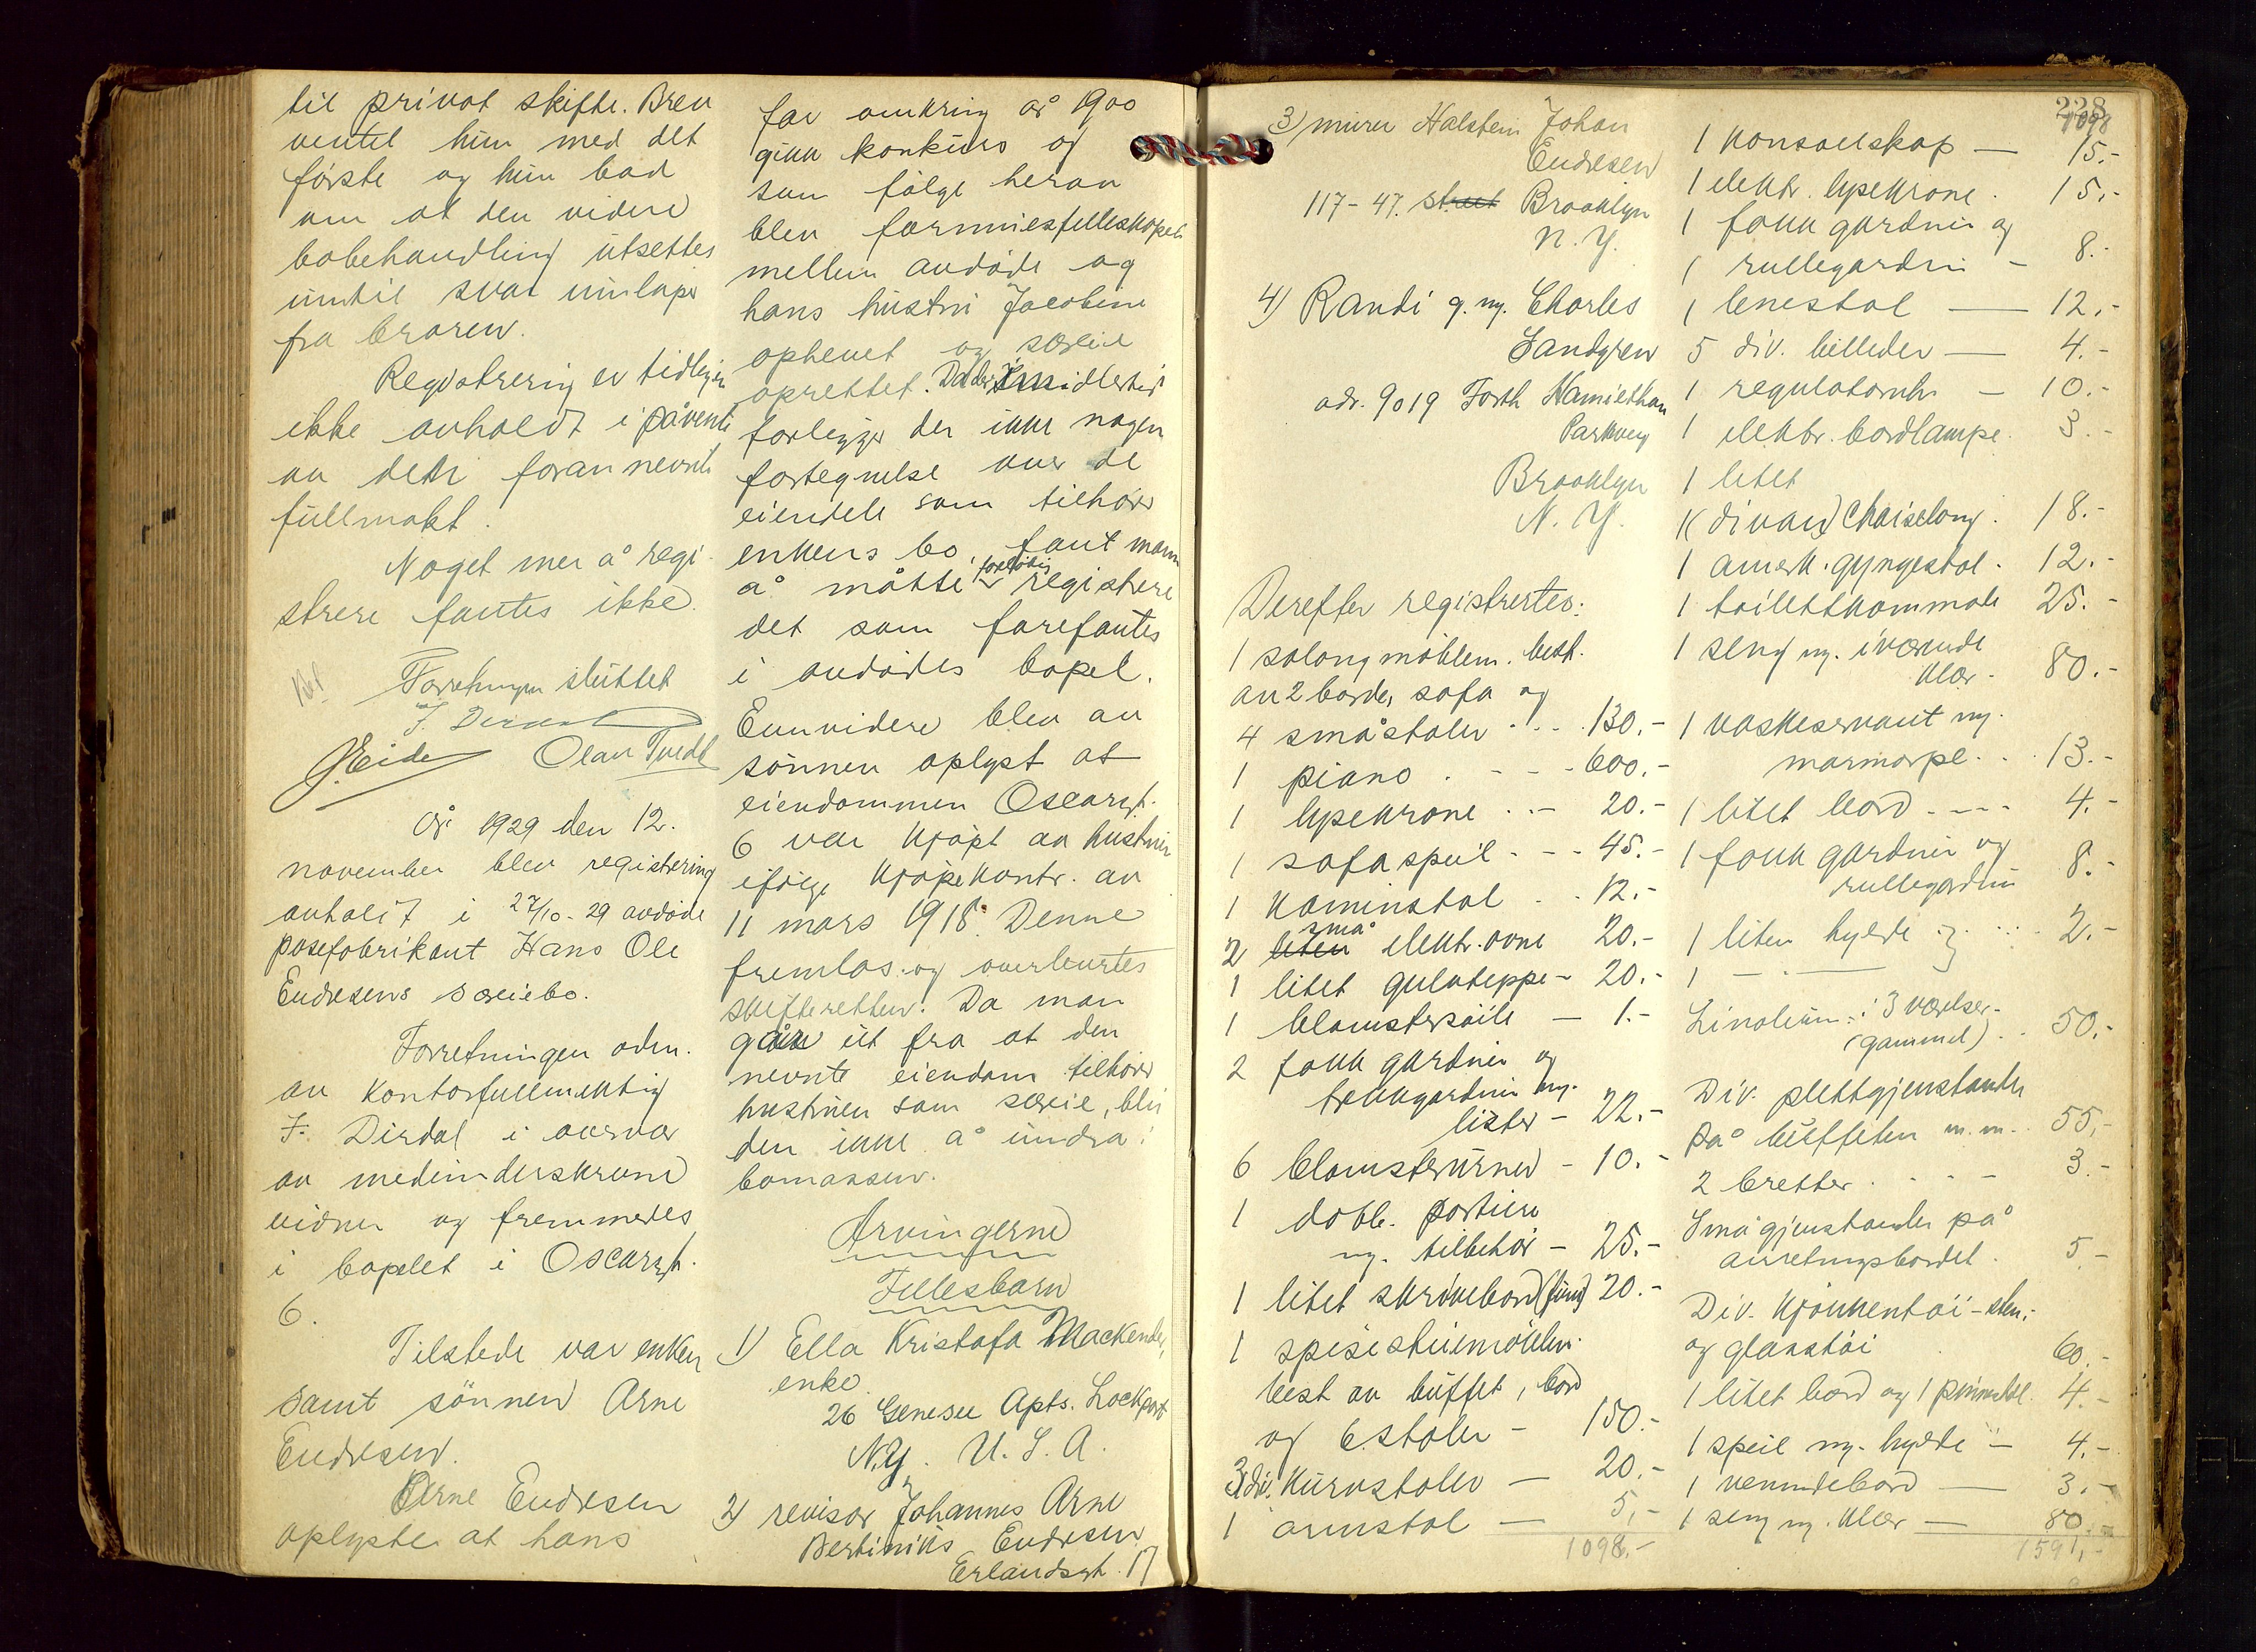 til privat skifte. Brev
ventet hun med det
første og hun bad
om at den videre
bobehandling utsettes
inntil svar innløper
fra broren.
Registrering er tidligere
ikke avholdt i påvente
av den foran nevnte
fullmakt.
Noget mer å regi-
strere fantes ikke.
Forretningen sluttet
J. Dirdal
J. Eide Olav Tvedt
År 1929 den 12.
november blev registrering
avholdt i 27/10-29 avdøde
posefabrikant Hans Ole
Endresens særeiebo.
Forretningen adm.
av kontorfullmektig
J. Dirdal i overvær
av medunderskrevne
vidner og fremmedes
i bopelet i Oscarsgt.
6.
Tilstede var enken
samt sønnen Arne
Endresen.
Arne Endresen
oplyste at hans
far omkring år 1900
gikk konkurs og
som følge herav
blev formuesfellesskapet
mellem avdøde og
hans hustru Jacobine
ophevet og særeie
oprettet. Da der imidlertid
forligger der ikke nogen
fortegnelse over de
eiendele som tilhører
enkens bo, fant man
å måtte foreløbig registrere
det som forefantes
i avdødes bopel.
Ennvidere blev av
sønnen oplyst at
eiendommen Oscarsgt.
6 var kjøpt av hustruen
ifølge kjøpekontr. av
11 mars 1918. Denne
fremlas og overleveres
skifteretten. Da man
går ut fra at den
nevnte eiendom tilhører
hustruen som særeie, blir
den ikke å inndra i
bomassen.
Arvingerne
Fellesbarn
1) Ella Kristofa Mackender,
enke
26 Genesee Apts. Lockport
N.Y. U.S.A.
2) revisor Johannes Arne
Bertinius Endresen
Erlandsgt. 17
3) murer Halstein Johan
Endresen
117-47. street Brooklyn
N.Y.
4) Randi g.m. Charles
Sandgren
adr. 9019 Forth Hamilthan
Parkvey
Brooklyn
N.Y.
Derefter registrertes:
1 salongmøblem. best.
av 2 border, sofa og
4 småstoler ... 130.-
1 piano . - - - 600.-
1 lysekrone .. - 20.-
1 sofaspeil - - - 45.-
1 kaminstol . . 12.-
2 liten små elektr. ovne 20.-
1 litet gulvteppe - 20.-
1 blomstersøile - 1.-
2 fakk gardiner og
trekkgardiner m.
lister - 22.-
6 blomsterurner - 10.-
1 dobb. portiere
m. tilbehør - 25.-
1 litet skrivebord (furu) 20.-
1 spisestuemøblem.
best av buffet, bord
og 6 stoler - 150.-
3 div. kurvstoler - 20.-
1 armstol - 5,-
1098.-
228
1098
1 konsollskap - 15.-
1 elektr. lysekrone. 15.-
1 fakk gardiner og
1 rullegardin - 8.-
1 lenestol - 12.-
5 div. billeder - 4.-
1 regulatoruhr - 10.-
1 elektr. bordlampe. 3.-
1 litet
1 (divan) Chaiselong. 18.-
1 amerk. gyngestol. 12.-
1 toilettkommode 25.-
1 seng m. iværende
klær - 80.-
1 vaskeservant m.
marmorpl. . . 13.-
1 litet bord - - - 4.-
1 fakk gardiner og
rullegardin 8.-
1 liten hylde ... 2.-
1 - " -
Linoleum i 3 værelser -
(gammel) . . 50.-
Div. plettgjenstander
på buffeten m.m. . 55,-
2 bretter . . . - 3.-
Små gjenstander på
anretningsbordet . 5.-
Div. kjøkkentøi - sten-
og glasstøi 60.-
1 litet bord og 1 pinnestol 4.-
1 speil m. hylde - 4.-
1 vennidebord - 3.-
1 seng m. klær - 80.-
1591,-